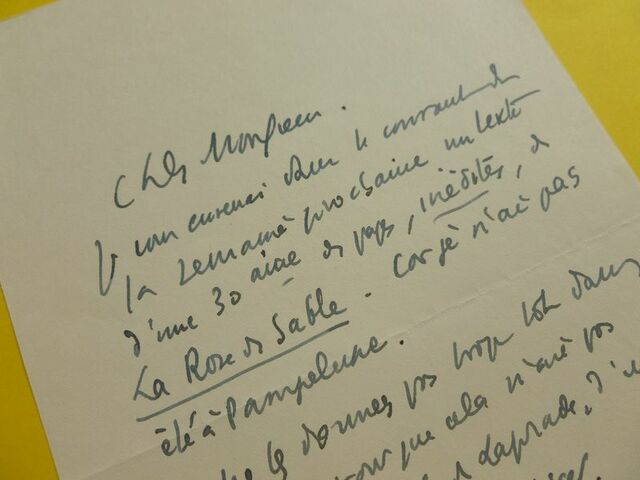 Cher Monsieur.
Je vous enverrai dans le courant de
la semaine prochaine un texte
d'une 30aine de pages, inédites, de
La Rose de Sable. Car je n'ai pas
été à Pampelune.
les donnez pas trop tôt dans
pour que cela n'ait pas
Laprade, d'